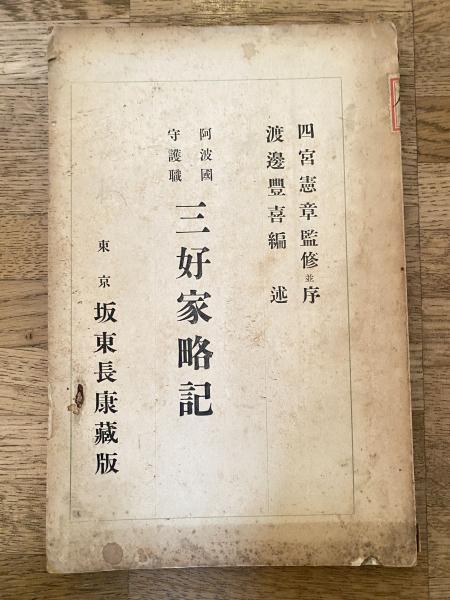 四宮憲章監修並序
渡邊豐喜編述
阿波國
守護職
三好家略記
東京
坂東長康藏版